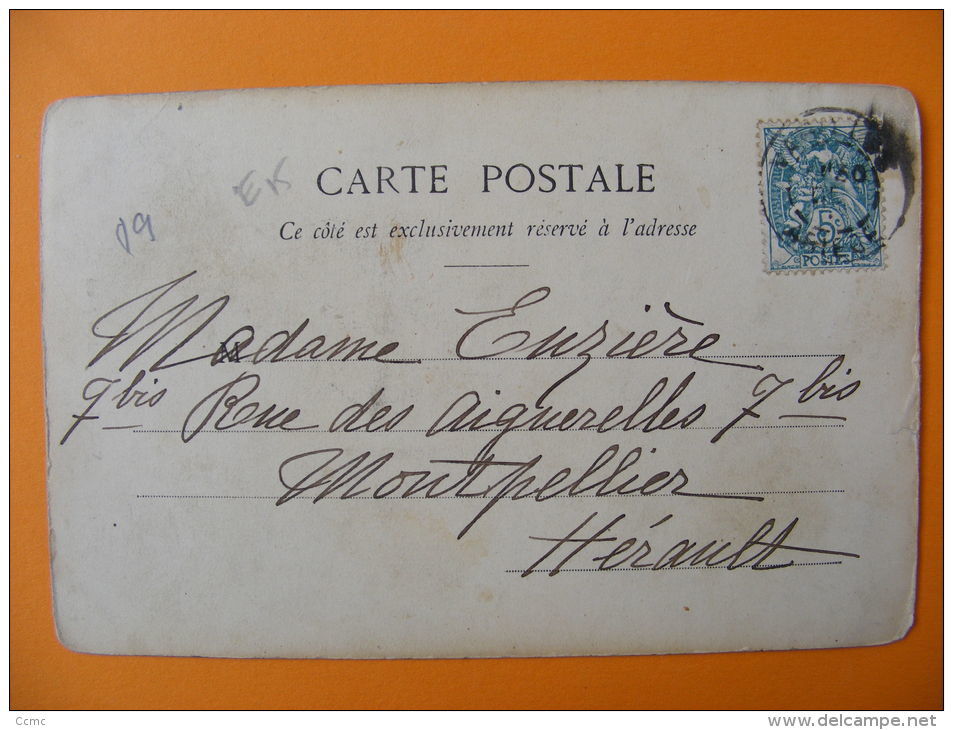 CARTE POSTALE
Ce côté est exclusivement réservé à l'adresse
19
5c
POSTES
Madame Euzière
7 bis Rue des Aiguerelles 7 bis
Montpellier
Hérault
Ccmc
www.delcampe.net